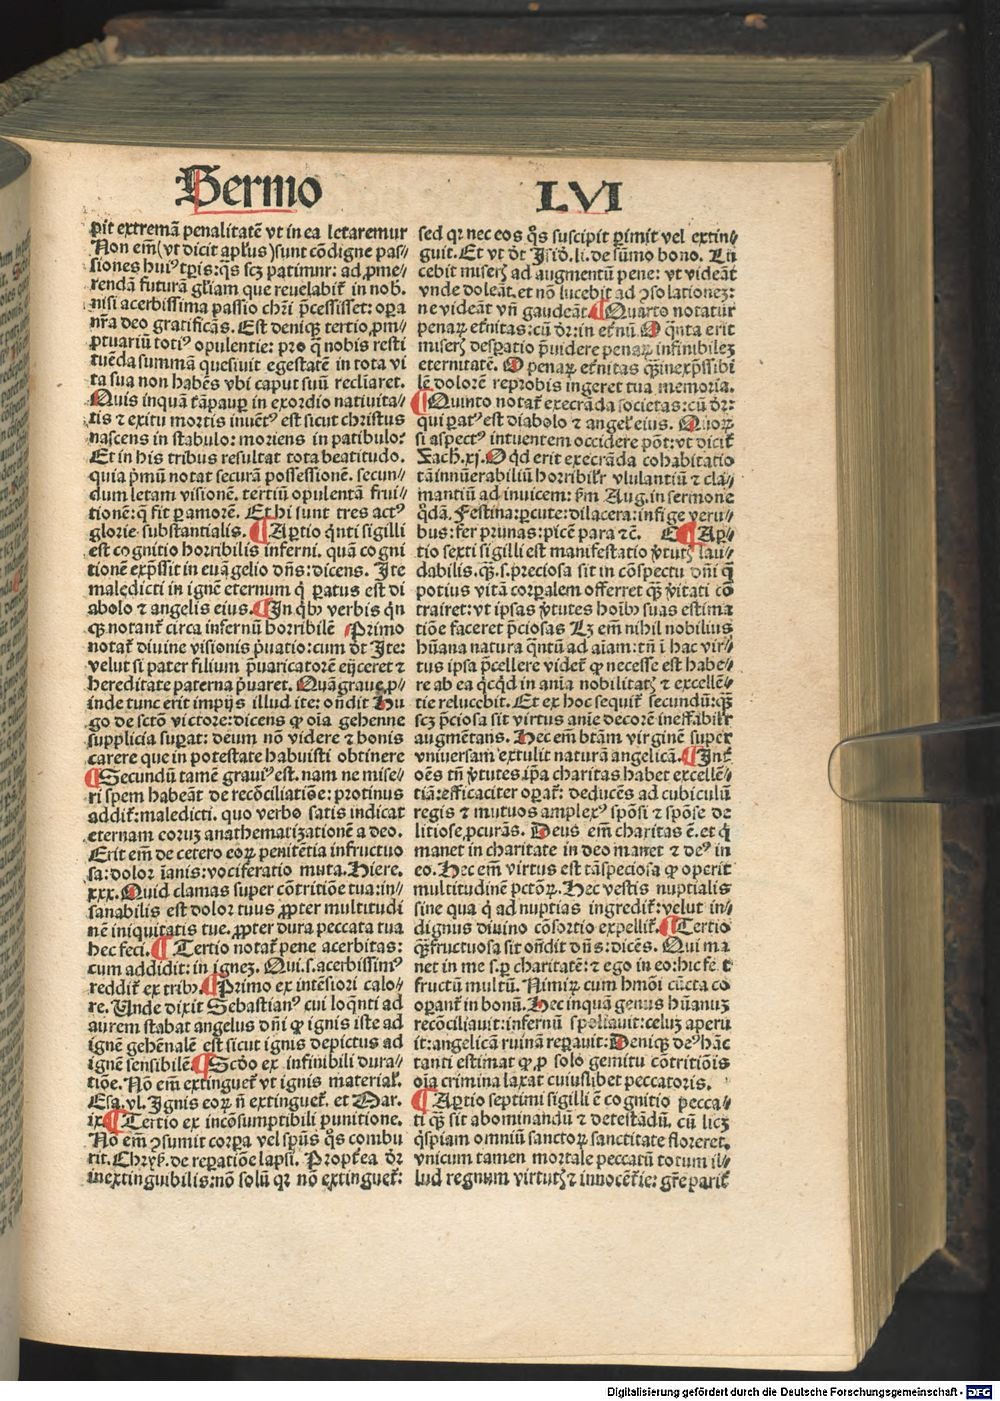 Sermo LVI
pit extremã penalitatẽ vt in ea letaremur
Non em̃ (vt dicit apl̃us) sunt cõdigne pas⸗
siones huiꝰ tꝑis: q̃s scꝫ patimur: ad ꝓme⸗
rendã futurã gl̃iam que reuelabit̃ in nob̃.
nisi acerbissima passio chr̃i p̃cessisset: oꝑa
nr̃a deo gratificãs. Est deniqꝫ tertio ꝓm⸗
ptuariũ totiꝰ opulentie: pro q̃ nobis resti
tuẽda summã quesiuit egestatẽ in tota vi
ta sua non habẽs vbi caput suũ recliaret.
Quis inquã tã pauꝑ in exordio natiuita⸗
tis ⁊ exitu mortis inuẽtꝰ est sicut christus
nascens in stabulo: moriens in patibulo?
Et in his tribus resultat tota beatitudo.
quia p̃mũ notat securã possessionẽ. secun⸗
dum letam visionẽ. tertiũ opulentã frui⸗
tionẽ: q̃ fit ꝑ amorẽ. Et hi sunt tres actꝰ
glorie substantialis. ¶ Aꝑtio q̃nti sigilli
est cognitio horribilis inferni. quã cogni
tionẽ exp̃ssit in euãgelio dñs: dicens. Ite
maledicti in ignẽ eternum q̃ ꝑatus est di
abolo ⁊ angelis eius. ¶ In q̃bꝰ verbis q̃n
qꝫ notant̃ circa infernũ horribilẽ Primo
notat̃ diuine visionis p̃uatio: cum d̃t Ite:
velut si pater filium p̃uaricatorẽ eijceret ⁊
hereditate paterna p̃uaret. Quã graue ꝓ⸗
inde tunc erit impijs illud ite: oñdit Hu
go de sctõ victore: dicens ꝙ oĩa gehenne
supplicia suꝑat: deum nõ videre ⁊ bonis
carere que in potestate habuisti obtinere
¶ Secundũ tamẽ grauiꝰ est. nam ne mise⸗
ri spem habeãt de recõciliatiõe: protinus
addit̃: maledicti. quo verbo satis indicat
eternam coruꝫ anathematizationẽ a deo.
Erit em̃ de cetero eoꝝ penitẽtia infructuo
sa: dolor ĩanis: vociferatio muta. Hiere.
xxx. Quid clamas super cõtritiõe tua: in⸗
sanabilis est dolor tuus ꝓpter multitudi
nẽ iniquitatis tue. ꝓpter dura peccata tua
hec feci. ¶ Tertio notat̃ pene acerbitas:
cum addidit: in ignez. Qui .s. acerbissimꝰ
reddit̃ ex tribꝰ. ¶ Primo ex intẽsiori calo⸗
re. Unde dixit Sebastianꝰ cui loq̃nti ad
aurem stabat angelus dñi ꝙ ignis iste ad
ignẽ gehẽnalẽ est sicut ignis depictus ad
ignẽ sensibilẽ. ¶ Scdõ ex infinibili dura⸗
tiõe. Nõ em̃ extinguet̃ vt ignis material̃.
Esa. vl. Ignis eoꝝ ñ extinguet̃. et Mar.
ix. ¶ Tertio ex incõsumptibili punitione.
Nõ em̃ ɔsumit corꝑa vel spũs q̃s combu
rit. Chryß. de reꝑatiõe lapsi. Propt̃ea d̃r
inextinguibilis: nõ solũ qꝛ nõ extinguet̃:
sed qꝛ nec eos q̃s suscipit ꝑimit vel extin⸗
guit. Et vt d̃t Isid̃. li. de sũmo bono. Lu
cebit miserꝭ ad augmentũ pene: vt videãt
vnde doleãt. et nõ lucebit ad ɔsolationez:
ne videãt vñ gaudeãt. ¶ Quarto notatur
penaꝝ et̃nitas: cũ d̃r: in et̃nũ. O q̃nta erit
miserꝭ desꝑatio p̃uidere penaꝝ infinibilez
eternitatẽ. O penaꝝ et̃nitas q̃ꝫ inexp̃ssibi
lẽ dolorẽ reprobis ingeret tua memoria.
¶ Quinto notat̃ execrãda societas: cũ d̃r:
qui ꝑatꝰ est diabolo ⁊ angel̃ eius. Quoꝝ
si aspectꝰ intuentem occidere põt: vt dicit̃
Zach. xj. O q̃d erit execrãda cohabitatio
tã innũerabiliũ horribilr̃ vlulantiũ ⁊ cla⸗
mantiũ ad inuicem: ẜm Aug. in sermone
q̃dã. Festina: ꝑcute: dilacera: infige veru⸗
bus: fer prunas: picẽ para ⁊c̃. E ¶ Aꝑ⸗
tio sexti sigilli est manifestatio v̓tutꝭ lau⸗
dabilis. q̃ꝫ .s. preciosa sit in cõspectu dñi q̃
potius vitã corꝑalem offerret q̃ꝫ v̓itati cõ
trairet: vt ipsas v̓tutes hoĩbꝰ suas estima
tiõe faceret p̃ciosas Lꝫ em̃ nihil nobilius
hũana natura q̃ntũ ad aĩam: tñ ĩ hac vir⸗
tus ipsa p̃cellere videt̃ ꝙ necesse est habe⸗
re ab ea q̃cq̃d in anĩa nobilitatꝭ ⁊ excellẽ⸗
tie relucebit. Et ex hoc sequit̃ secundũ: q̃ꝫ
scꝫ p̃ciosa sit virtus anĩe decorẽ ineffabilr̃
augmẽtans. Hec em̃ btãm virginẽ super
vniuersam extulit naturã angelicã. ¶ Int̃
oẽs tñ v̓tutes ip̃a charitas habet excellẽ⸗
tiã: efficaciter oꝑat̃: deducẽs ad cubiculũ
regis ⁊ mutuos amplexꝰ spõsi ⁊ spõse de
litiose ꝓcurãs. Deus em̃ charitas ẽ. et q̃
manet in charitate in deo manet ⁊ deꝰ in
eo. Hec em̃ virtus est tã speciosa ꝙ operit
multitudinẽ pctõꝝ. Hec vestis nuptialis
sine qua q̃ ad nuptias ingredit̃: velut in⸗
dignus diuino cõsortio expellit̃. ¶ Tertio
q̃ꝫ fructuosa sit oñdit dñs: dicẽs. Qui ma
net in me .s. ꝑ charitatẽ: ⁊ ego in eo: hic fert
fructũ multũ. Nimiꝝ cum hmõi cũcta co
oꝑant̃ in bonũ. Hec inquã genus hũanuꝫ
recõciliauit: infernũ spoliauit: celuꝫ aperu
it: angelicã ruinã reꝑauit: Deniqꝫ deꝰ hãc
tanti estimat ꝙ ꝓ solo gemitu cõtritiõis
oĩa crimina laxat cuiuslibet peccatoris.
¶ Aꝑtio septimi sigilli ẽ cognitio pecca⸗
ti q̃ꝫ sit abominandũ ⁊ detestãdũ. cũ licꝫ
q̃spiam omniũ sanctoꝝ sanctitate floreret.
vnicum tamen mortale peccatũ totum il⸗
lud regnum virtutꝭ ⁊ innocẽtie: gr̃e ꝑarit̃
Digitalisierung gefördert durch die Deutsche Forschungsgemeinschaft - DFG